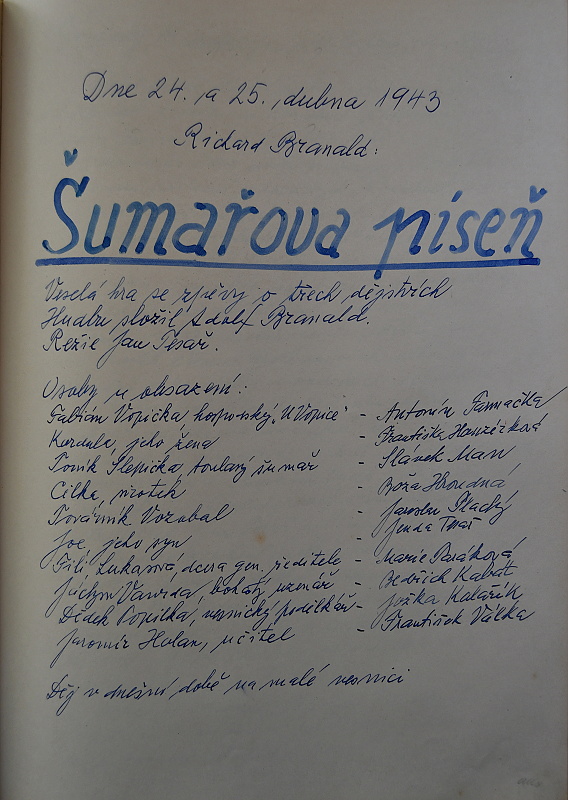 Dne 24. a 25. dubna 1943
Richard Branald:
Šumařova píseň
Veselá hra se zpěvy o třech dějstvích
Hudbu složil Adolf Branald.
Režie Jan Tesař.
Osoby a obsazení:
Fabián Vopička hospodský „U Vopice" - Antonín
jeho žena - Františka
Toník Slepička, toulavý šumař - Slávek Man
Cilka, sirotek - Boža Hroudná
Továrník Vozobal - Jaroslav Plachý
Joe, jeho syn - Jenda
Fifi Lukasová, dcera gen. ředitele - Marie
Jáchym Vavrda, bohatý uzenář - Bedřich Kabát
Dědek Popilka, vesnický - Jožka Kolařík
Jaromír Holan, učitel - František Válka
Děj v dnešní době na malé vesnici